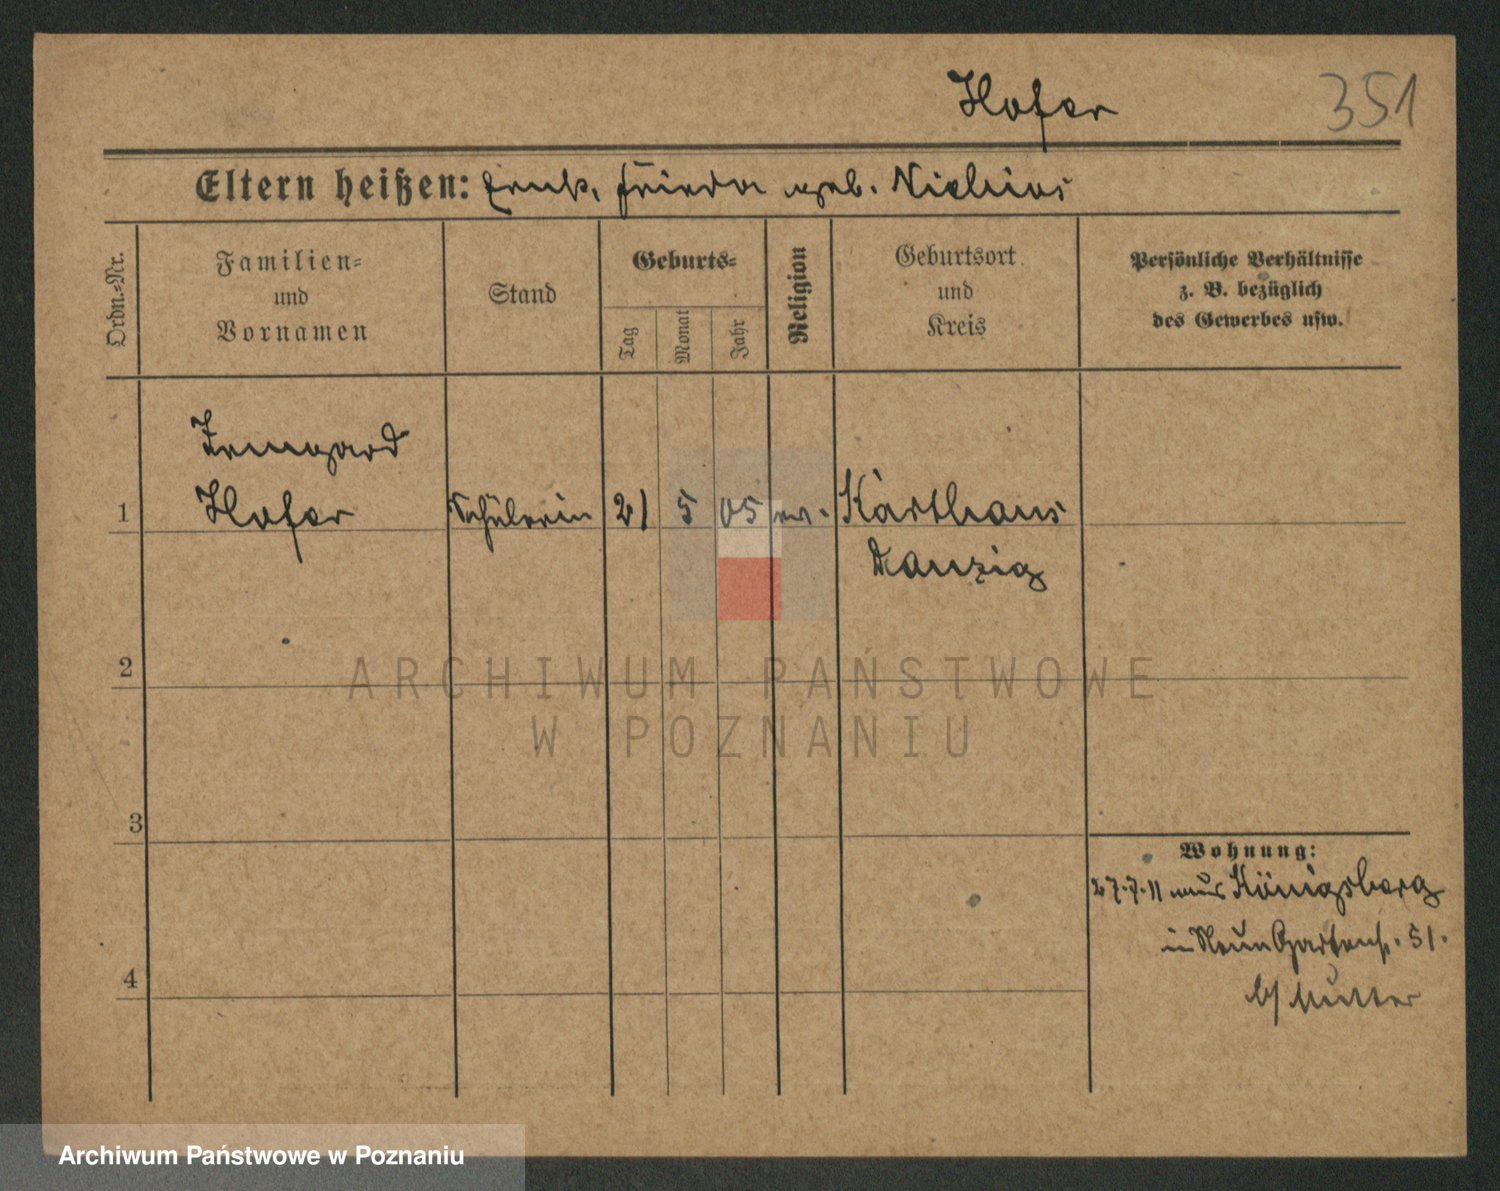 Hofer 351
Eltern heißen: Ernst, Frieda geb.
Ordn.-Nr.
Familien-
und
Vornamen
Stand
Geburts-
Tag
Monat
Jahr
Religion
Geburtsort
und
Kreis
Persönliche Verhältnisse
z. B. bezüglich
des Gewerbes usw.
Irmgard
1 Hofer Schülerin 21 5 05 ev. Karthaus
Danzig
2
ARCHIWUM PAŃSTWOWE
W POZNANIU
3
Wohnung:
27.7.11 aus Königsberg
in Neue Gartenst. 51.
b/ Mutter
4
Archiwum Państwowe w Poznaniu